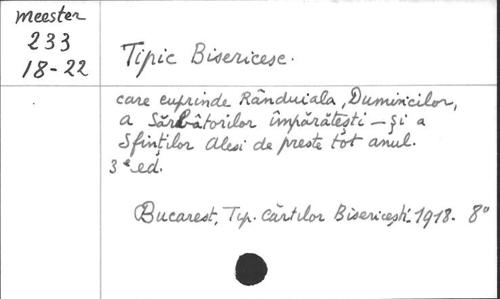 Meester
233
18-22
Tipic Bisericesc.
care cuprinde Rânduiala, Duminicilor,
a Sărbâtorilor împărătești – și a
Sfinților Alesi de preste tot anul.
3e ed.
Bucarest, Tip. Cărtilor Bisericești. 1918. 8°